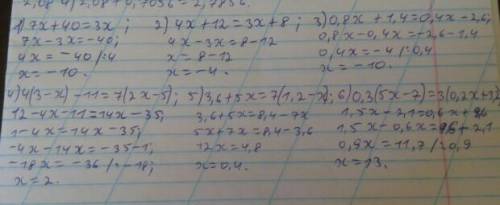 2,08 + 0,7056 = 2,7856.
1) 7x+40=3x ; 2) 4x+12=3x+8 ; 3) 0,8x+1,4=0,4x-2,6;
7x-3x=-40; 4x-3x=8-12 0,8x-0,4x=-2,6-1,4
4x=-40/:4 x=8-12 0,4x=-4/:0,4
x=-10. x=-4. x=-10.
4) 4(3-x)-11=7(2x-5); 5) 3,6+5x=7(1,2-x); 6) 0,3(5x-7)=3(0,2x+3,2)
12-4x-11=14x-35; 3,6+5x=8,4-7x 1,5x-2,1=0,6x+9,6
1-4x=14x-35; 5x+7x=8,4-3,6 1,5x-0,6x=9,6+2,1
-4x-14x=-35-1; 12x=4,8 0,9x=11,7/:0,9
-18x=-36/:-18; x=0,4. x=13.
x=2.